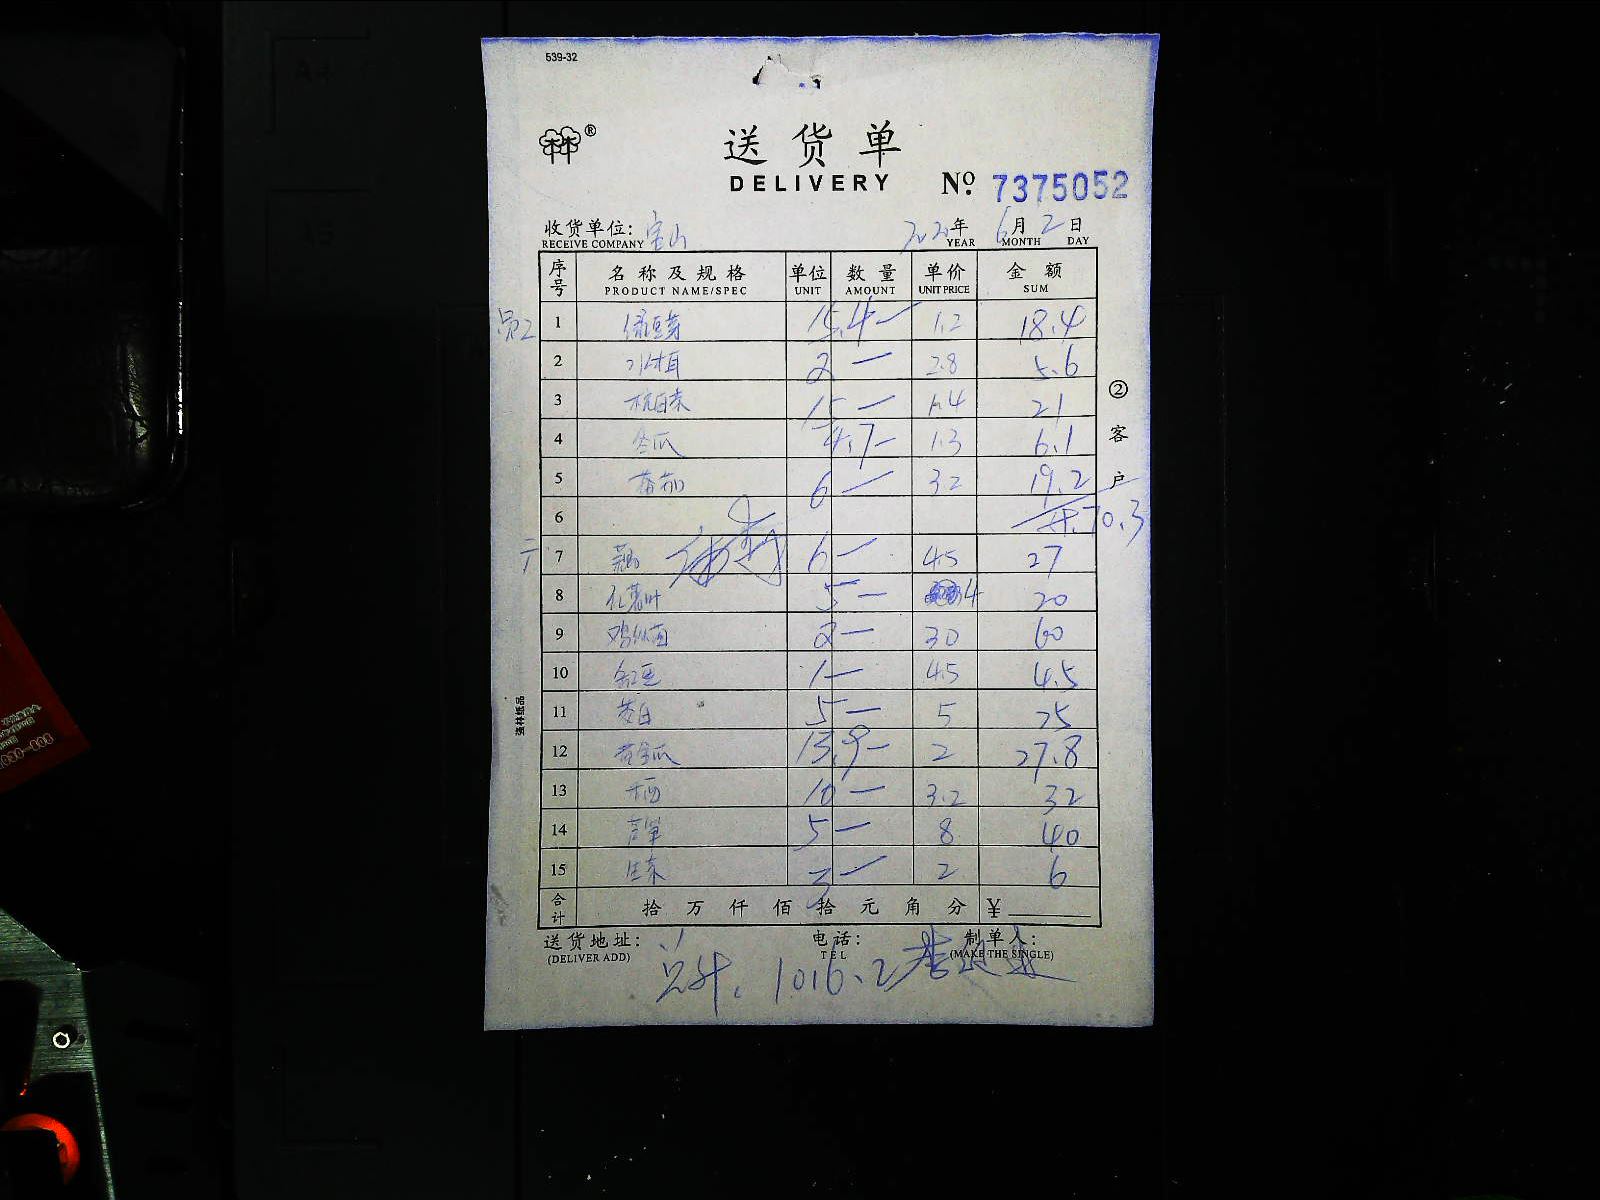 539-32
送货单
DELIVERY
No. 7375052
收货单位: 宝山 年 6月 2日
RECEIVE COMPANY YEAR MONTH DAY
序号 名称及规格 单位 数量 单价 金额
PRODUCT NAME/SPEC UNIT AMOUNT UNIT PRICE SUM
员工 1 绿豆芽 15.4 — 1.2 18.4
2 水木耳 2 — 2.8 5.6
3 杭白菜 15 — 1.4 21
4 冬瓜 4.7 — 1.3 6.1
5 蕃茄 6 — 3.2 19.2
6 计.70.3
7 6 — 4.5 27
8 5 — 4 20
9 鸡纵菌 2 — 30 60
10 缸豆 1 — 4.5 4.5
11 茭白 5 — 5 25
12 13.9 — 2 27.8
13 10 — 3.2 32
14 芦笋 5 — 8 40
15 生菜 3 — 2 6
合计 拾 万 仟 佰 拾 元 角 分 ¥
② 客户
强林纸品
送货地址: 电话: 制单人:
(DELIVER ADD) TEL (MAKE THE SINGLE)
总计. 1016.2